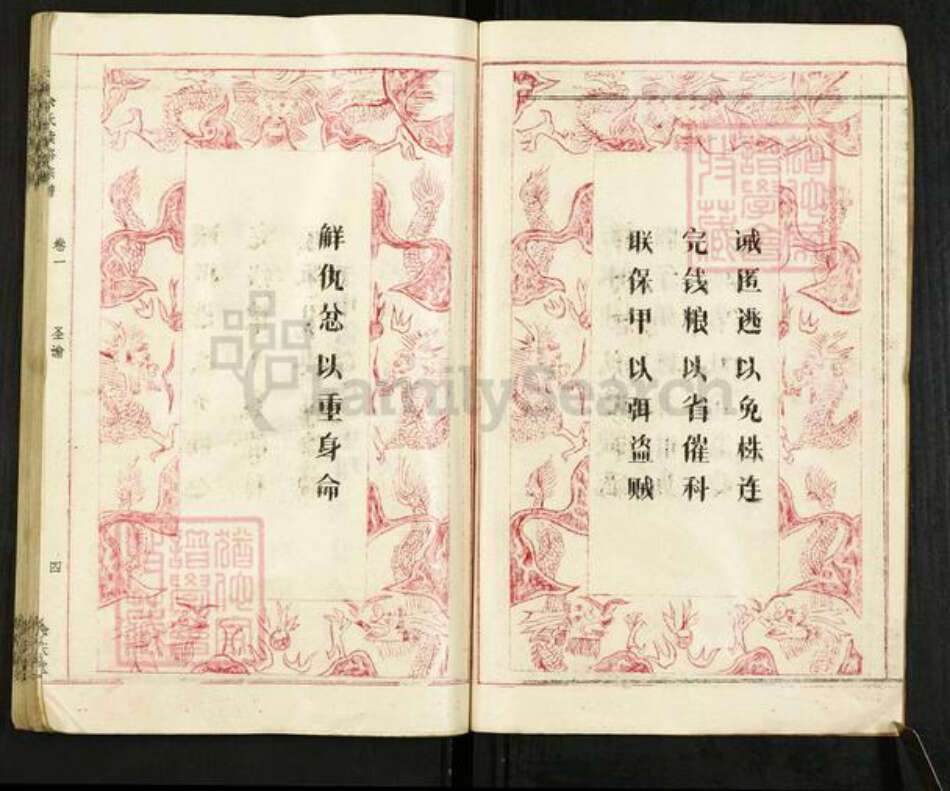 诫匿逃以免株连
完钱粮以省催科
联保甲以弭盗贼
鲜仇忿以重身命
卷一 圣谕
四
FamilySearch